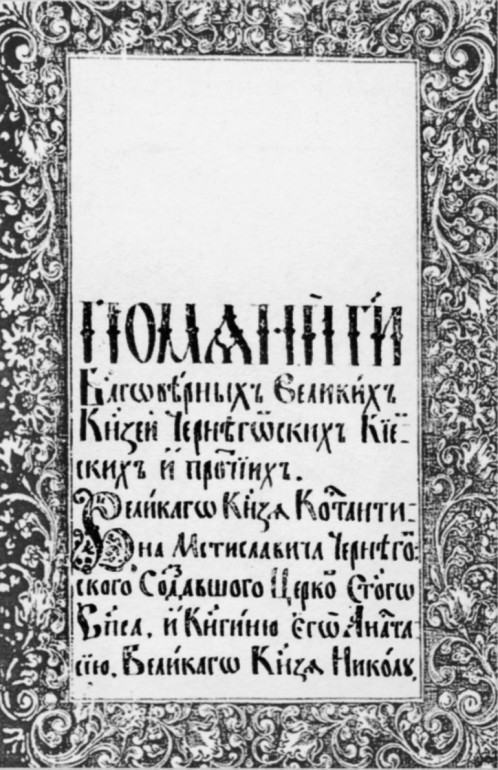 ПОМѦНИ ГИ
Бл҃гѡвѣ́рныхъ Вели́ки́хъ
Кн҃зей Черне́гѡвскихъ Кїе-
скихъ и҆ про́тїихъ.
Вели́кагѡ Кн҃зѧ Котанти-
на Мстиславича Черне́го-
ского Созда́вшого Церко Ст҃о́гѡ
Сп҃са, и҆ Кн҃гиню Є҆гѡ̀ Аната-
сїю, Вели́кагѡ Кн҃зѧ Нико́лу,